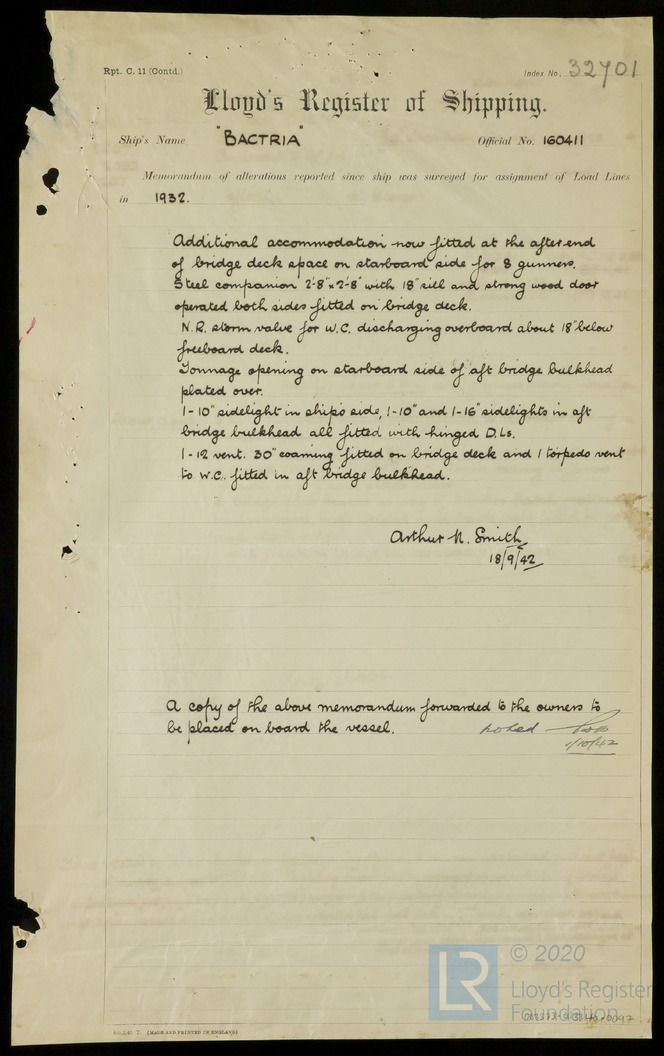 Rpt. C. 11 (Contd.)
Index No. 32701
Lloyd's Register of Shipping.
Ship's Name "BACTRIA" Official No. 160411
Memorandum of alterations reported since ship was surveyed for assignment of Load Lines
in 1932.
Additional accommodation now fitted at the after end
of bridge deck space on starboard side for 8 gunners.
Steel companion 2'-8" x 2'-8" with 18" sill and strong wood door
operated both sides fitted on bridge deck.
N.R. storm valve for W.C. discharging overboard about 18" below
freeboard deck.
Tonnage opening on starboard side of aft bridge bulkhead
plated over.
1-10" sidelight in ship's side, 1-10" and 1-16" sidelights in aft
bridge bulkhead all fitted with hinged D.Ls.
1-12 vent. 30" coaming fitted on bridge deck and 1 torpedo vent
to W.C. fitted in aft bridge bulkhead.
Arthur N. Smith
18/9/42
A copy of the above memorandum forwarded to the owners to
be placed on board the vessel.
noted
1/10/42
(MADE AND PRINTED IN ENGLAND)
LR
© 2020
Lloyd's Register
Foundation